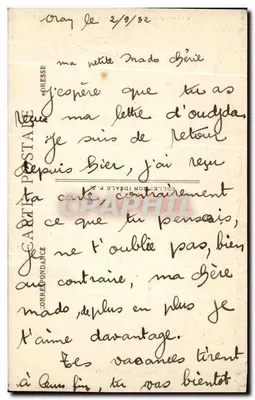 Oran le 2/9/32
ma petite Mado chérie
j'espère que tu as
reçu ma lettre d'oudjda
je suis de retour
depuis hier, j'ai reçu
ta carte, contrairement
à ce que tu pensais,
je ne t'oublie pas, bien
au contraire, ma chère
mado, de plus en plus je
t'aime davantage.
Tes vacances tirent
à leur fin, tu vas bientôt
CARTE POSTALE
CORRESPONDANCE
ADRESSE
COLLECTION IDÉALE P.S.
CPAPHIL